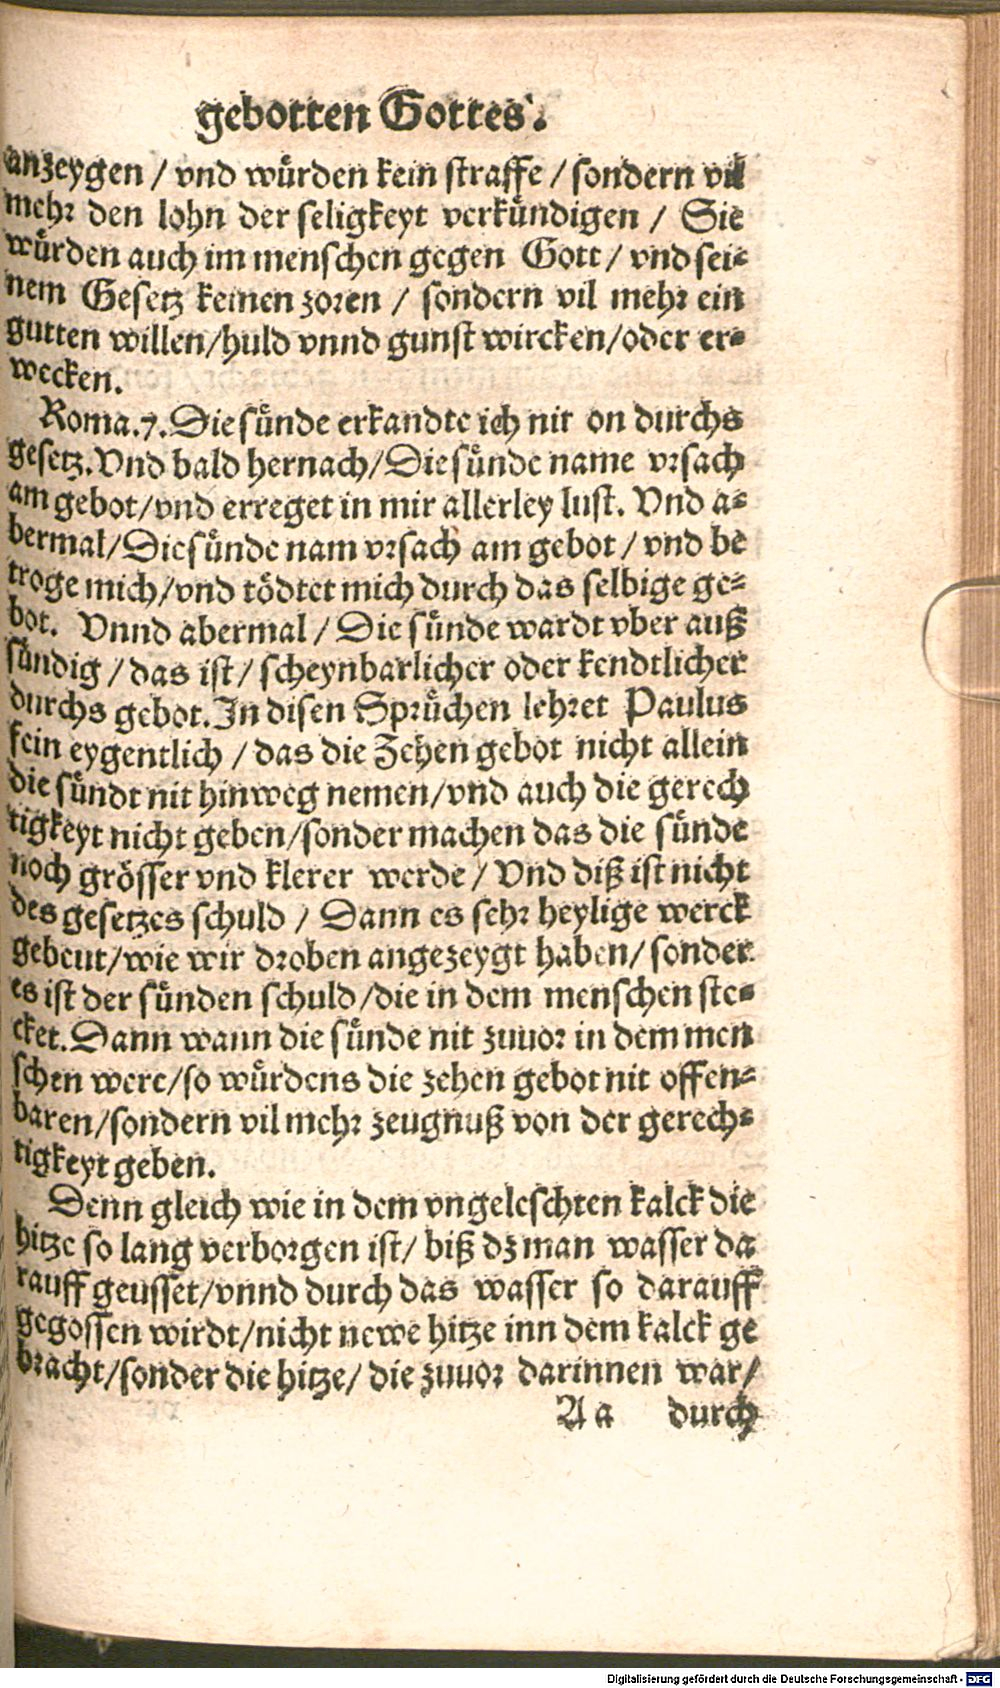 gebotten Gottes.
anzeygen / vnd wuͤrden kein straffe / sondern vil
mehr den lohn der seligkeyt verkuͤndigen / Sie
wuͤrden auch im menschen gegen Gott / vnd sei-
nem Gesetz keinen zoren / sondern vil mehr ein
gutten willen / huld vnnd gunst wircken / oder er-
wecken.
Roma. 7. Die suͤnde erkandte ich nit on durchs
gesetz. Vnd bald hernach / Die suͤnde name vrsach
am gebot / vnd erreget in mir allerley lust. Vnd a-
bermal / Die suͤnde nam vrsach am gebot / vnd be
troge mich / vnd tödtet mich durch das selbige ge-
bot. Vnnd abermal / Die suͤnde wardt vber auß
suͤndig / das ist / scheynbarlicher oder kendtlicher
durchs gebot. In disen Spruͤchen lehret Paulus
fein eygentlich / das die Zehen gebot nicht allein
die suͤndt nit hinweg nemen / vnd auch die gerech
tigkeyt nicht geben / sonder machen das die suͤnde
noch grösser vnd klerer werde / Vnd diß ist nicht
des gesetzes schuld / Dann es sehr heylige werck
gebeut / wie wir droben angezeygt haben / sonder
es ist der suͤnden schuld / die in dem menschen ste-
cket. Dann wann die suͤnde nit zuuor in dem men
schen were / so wuͤrdens die zehen gebot nit offen-
baren / sondern vil mehr zeugnuß von der gerech-
tigkeyt geben.
Denn gleich wie in dem vngeleschten kalck die
hitze so lang verborgen ist / biß dz man wasser da
rauff geusset / vnnd durch das wasser so darauff
gegossen wirdt / nicht newe hitze inn dem kalck ge
bracht / sonder die hitze / die zuuor darinnen war /
A a durch
Digitalisierung gefördert durch die Deutsche Forschungsgemeinschaft - DFG